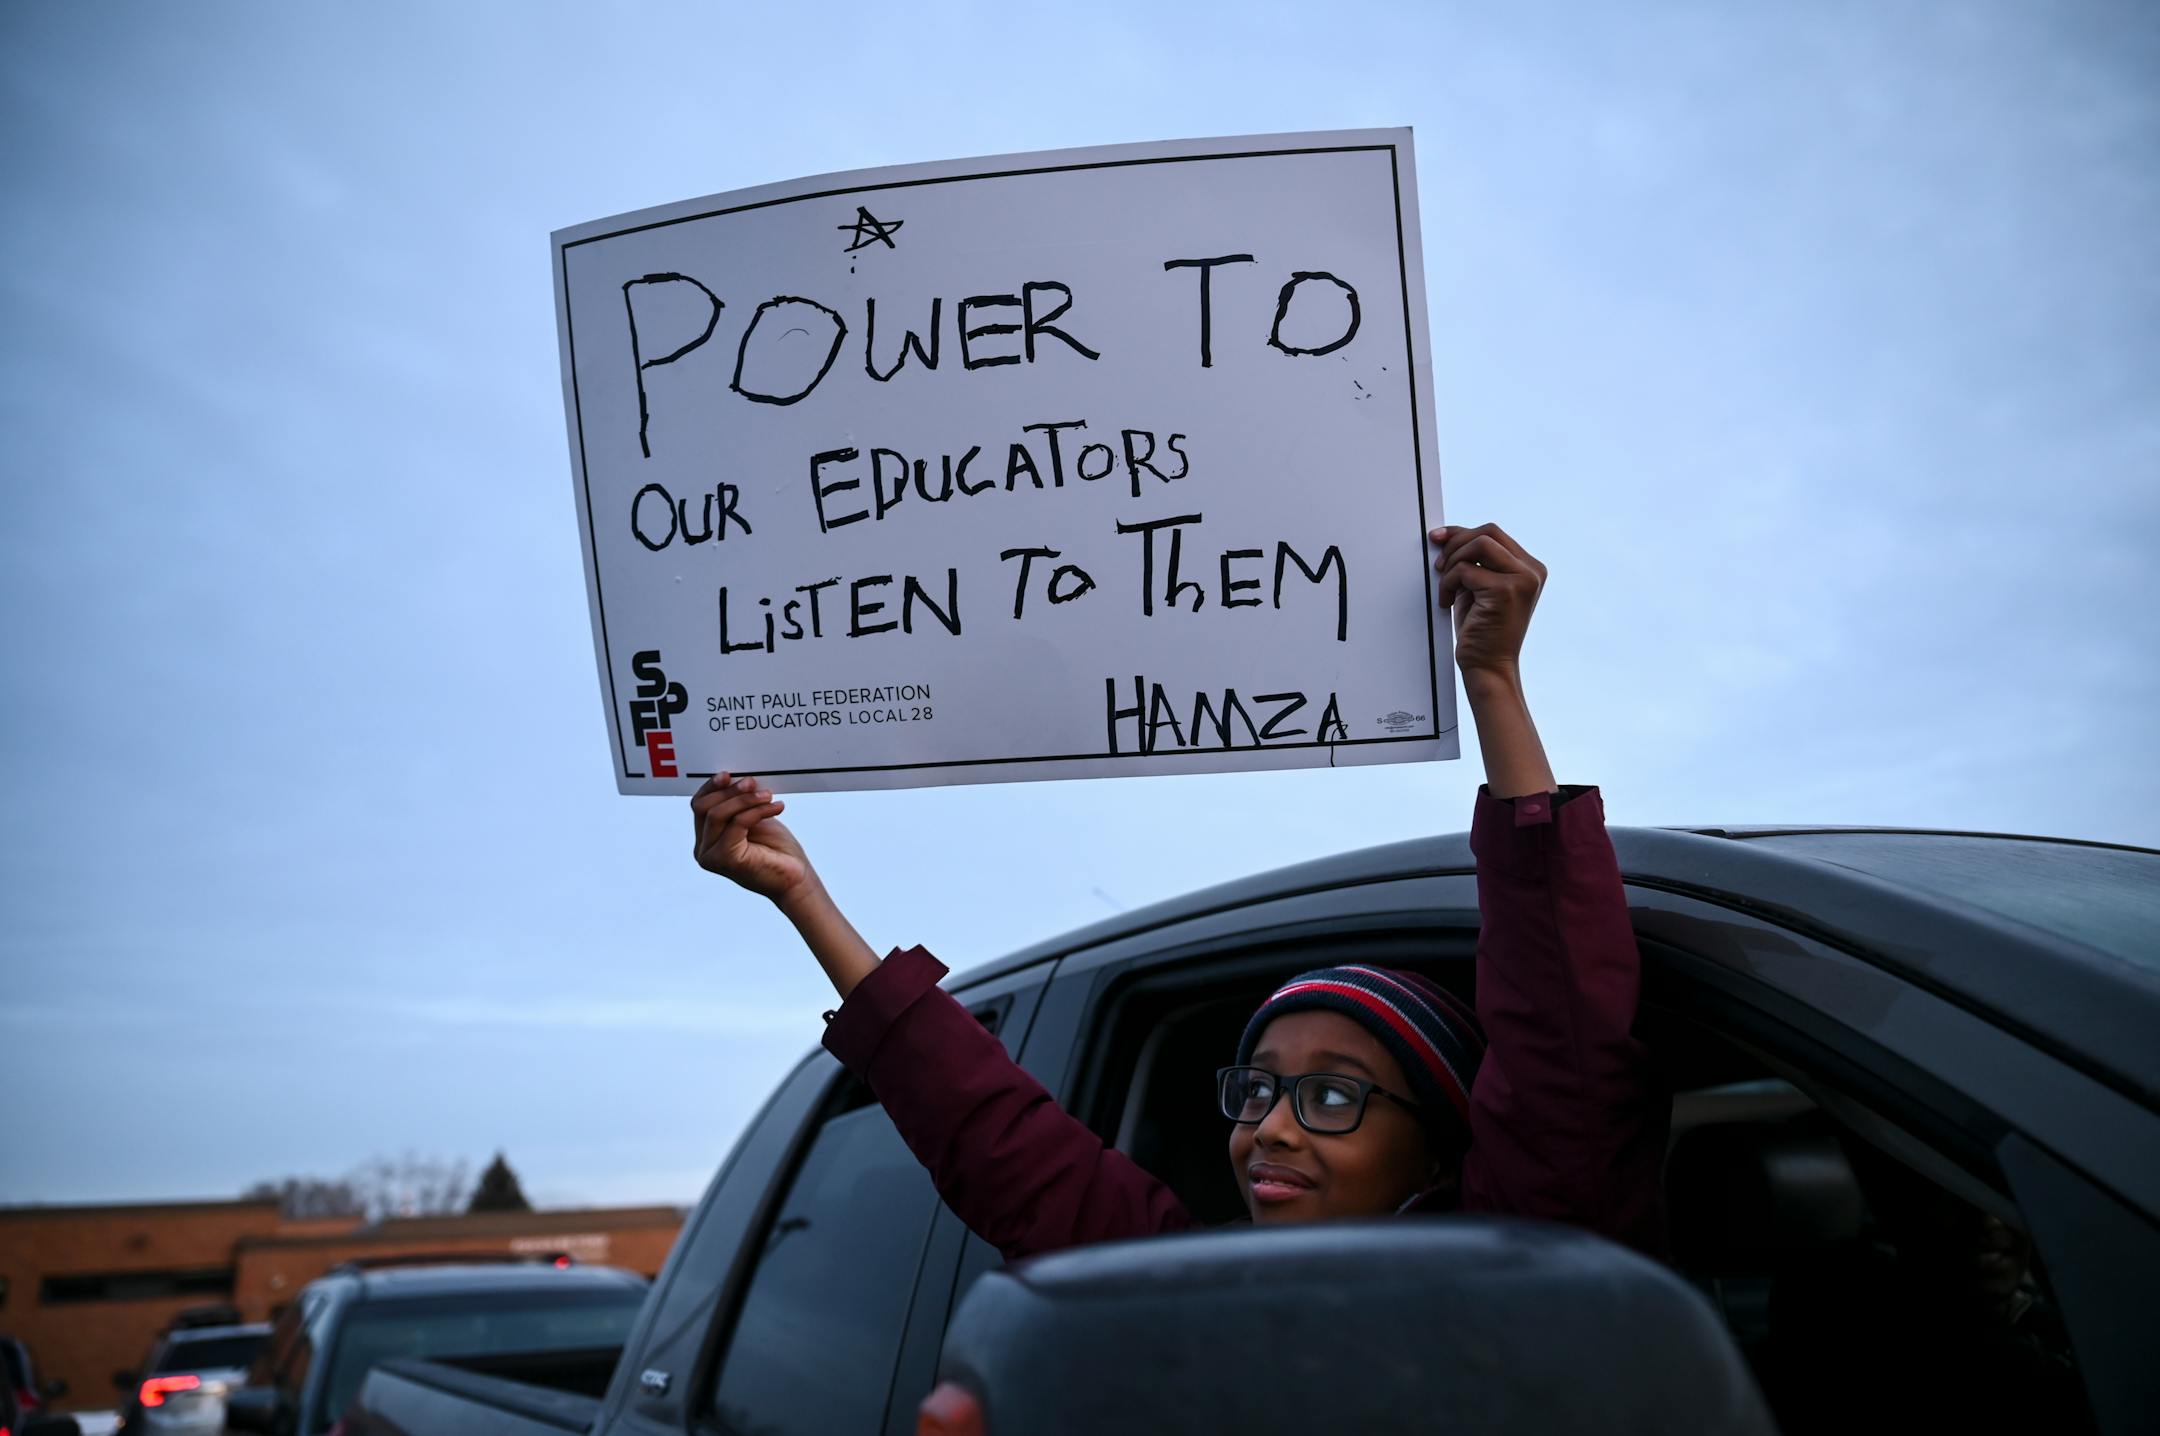 POWER TO
OUR EDUCATORS
LiSTEN To ThEM
HAMZA
SPFE
SAINT PAUL FEDERATION
OF EDUCATORS LOCAL 28